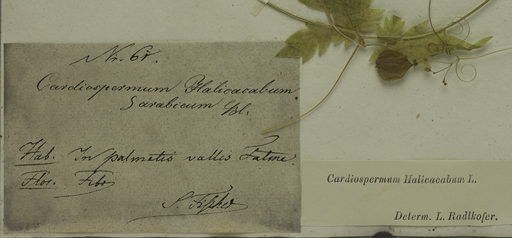 Nr. 68.
Cardiospermum Halicacabum
arabicum Bl.
Hab. In palmetis vallis Fatme.
Flor. Febr
Cardiospermum Halicacabum L.
Determ. L. Radlkofer.